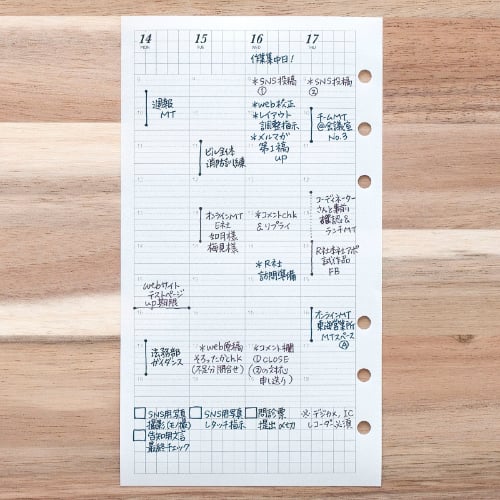 14
MON
週報
MT
webサイト
テストページ
up期限
法務部
ガイダンス
SNS用写真
撮影(モノ撮)
告知用文言
最終チェック
15
TUE
ビル全体
消防訓練
オンラインMT
E社
如月様
梅見様
＊web原稿
そろったかchk
(不足分問合せ)
SNS用写真
レタッチ指示
16
WED
作業集中日！
＊SNS投稿
①
＊web校正
＊レイアウト
調整指示
＊メルマガ
第1稿
up
＊コメントchk
＆リプライ
＊R社
訪問準備
＊コメント欄
①CLOSE
申し送り)
問診票
提出〆切
17
THU
＊SNS投稿
②
チームMT
@会議室
No.3
コーディネーター
さんと事前
確認＆
ランチMT
R社本社アポ
試作品
FB
オンラインMT
東海営業所
MTスペース
Ⓐ
※デジカメ、IC
レコーダー必須